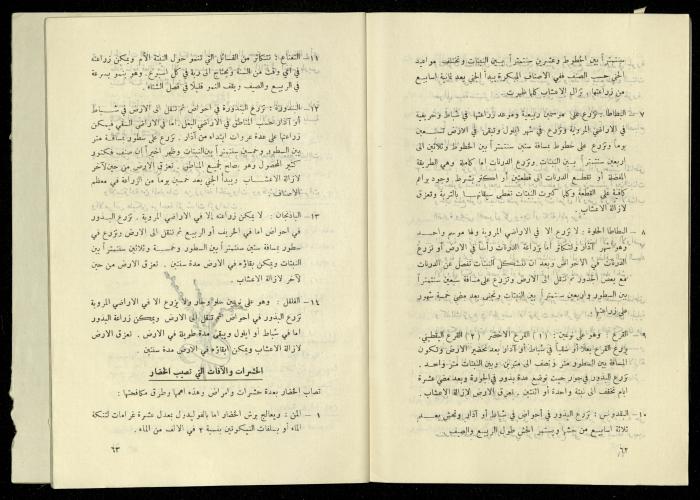 سنتمتراً بين الخطوط وعشرين سنتمتراً بين النبتات وتختلف مواعيد
الجني حسب الصنف ففي الاصناف المبكرة يبدأ الجني بعد ثمانية اسابيع
من زراعتها ، تزال الاعشاب كلما ظهرت .
٧ – البطاطا : تزرع على موسمين ربيعية وموعد زراعتها في شباط وخريفية
في الاراضي المروية وتزرع في شهر ايلول وتبقى في الارض تسعين
يوماً وتزرع على خطوط بمسافة ستين سنتمتراً بين الخطوط وثلاثين الى
اربعين سنتمتراً بين النبتات وتزرع الدرنات اما كاملة وهي الطريقة
المفضلة أو تقطع الدرنات الى قطعتين أو اكثر بشرط وجود براعم
كافية على القطعة وكلما كبرت النبتات تغطى سيقانها بالتربة وتعزق
لازالة الاعشاب .
٨ – البطاطا الحلوة : لا تزرع الا في الاراضي المروية ولها موسم واحد
وهو شهر آذار وتتكاثر أما بزراعة الدرنات رأساً في الارض أو تزرع
الدرنات في الاحواض وبعد ان تتشكل النبتات تفصل عن الدرنات
مع بعض الجذور ثم تنقل الى الارض وتزرع على مسافة سبعين سنتمتراً
بين السطور واربعين سنتمتراً بين النبتات وتجنى بعد مضي خمسة شهور
على زراعتها .
٩ – القرع : وهو على نوعين : (١) القرع الاخضر (٢) القرع اليقطيني .
يزرع القرع بعلاً أو سقياً في شباط أو آذار بعد تحضير الارض وتكون
المسافة بين السطور متر ونصف الى مترين وبين النبتات متر واحد .
تزرع البذور في جور بحيث توضع عدة بذور في الجورة وبعد مضي عشرة
ايام تخفف الى نبتة واحدة أو اثنتين . تعزق الارض لازالة الاعشاب .
١٠ – البقدونس : تزرع البذور في أحواض في شباط أو آذار وتحش بعد
ثلاثة اسابيع من حشها ويستمر الحش طول الربيع والصيف .
٦٢
١١ – النعناع : تتكاثر من الفسائل التي تنمو حول النبتة الأم ويمكن زراعته
في أي وقت من السنة ويحتاج الى رية في كل اسبوع . وهو ينمو بسرعة
في الربيع والصيف ويقف النمو قليلاً في فصل الشتاء .
١٢ – البندورة : تزرع البندورة في احواض ثم تنقل الى الارض في شباط
أو آذار حسب المناطق في الاراضي البعل اما في الاراضي السقي فيمكن
زراعتها على عدة عروات ابتداء من آذار . تزرع على سطور بمسافة متر
بين السطور وخمسين سنتمتراً بين النبتات وظهر اخيراً ان صنف فكتور
كثير المحصول وهو يصلح لجميع المناطق . تعزق الارض من حين لآخر
لازالة الاعشاب ويبدأ الجني بعد خمسين يوماً من الزراعة في معظم
الاصناف .
١٣ – الباذنجان : لا يمكن زراعته إلا في الاراضي المروية . تزرع البذور
في احواض اما في الخريف أو الربيع ثم تنقل الى الارض وتزرع في
سطور بمسافة ستين سنتمتراً بين السطور وخمسة وثلاثين سنتمتراً بين
النبتات ويمكن بقاؤه في الارض مدة سنتين . تعزق الارض من حين
لآخر لازالة الاعشاب .
١٤ – الفلفل : وهو على نوعين حلو وحار ولا يزرع الا في الاراضي المروية
تزرع البذور في احواض ثم تنقل الى الارض ويمكن زراعة البذور
اما في شباط أو ايلول ويبقى مدة طويلة في الارض . تعزق الارض
لازالة الاعشاب ويمكن ابقاؤه في الارض مدة سنتين .
الحشرات والآفات التي تصيب الخضار
تصاب الخضار بعدة حشرات وامراض وهذه اهمها وطرق مكافحتها :
١ – المن : ويعالج برش الخضار اما بالفوليدول بمعدل عشرة غرامات لتنكة
الماء أو بسلفات النيكوتين بنسبة ٢ في الالف من الماء .
٦٣